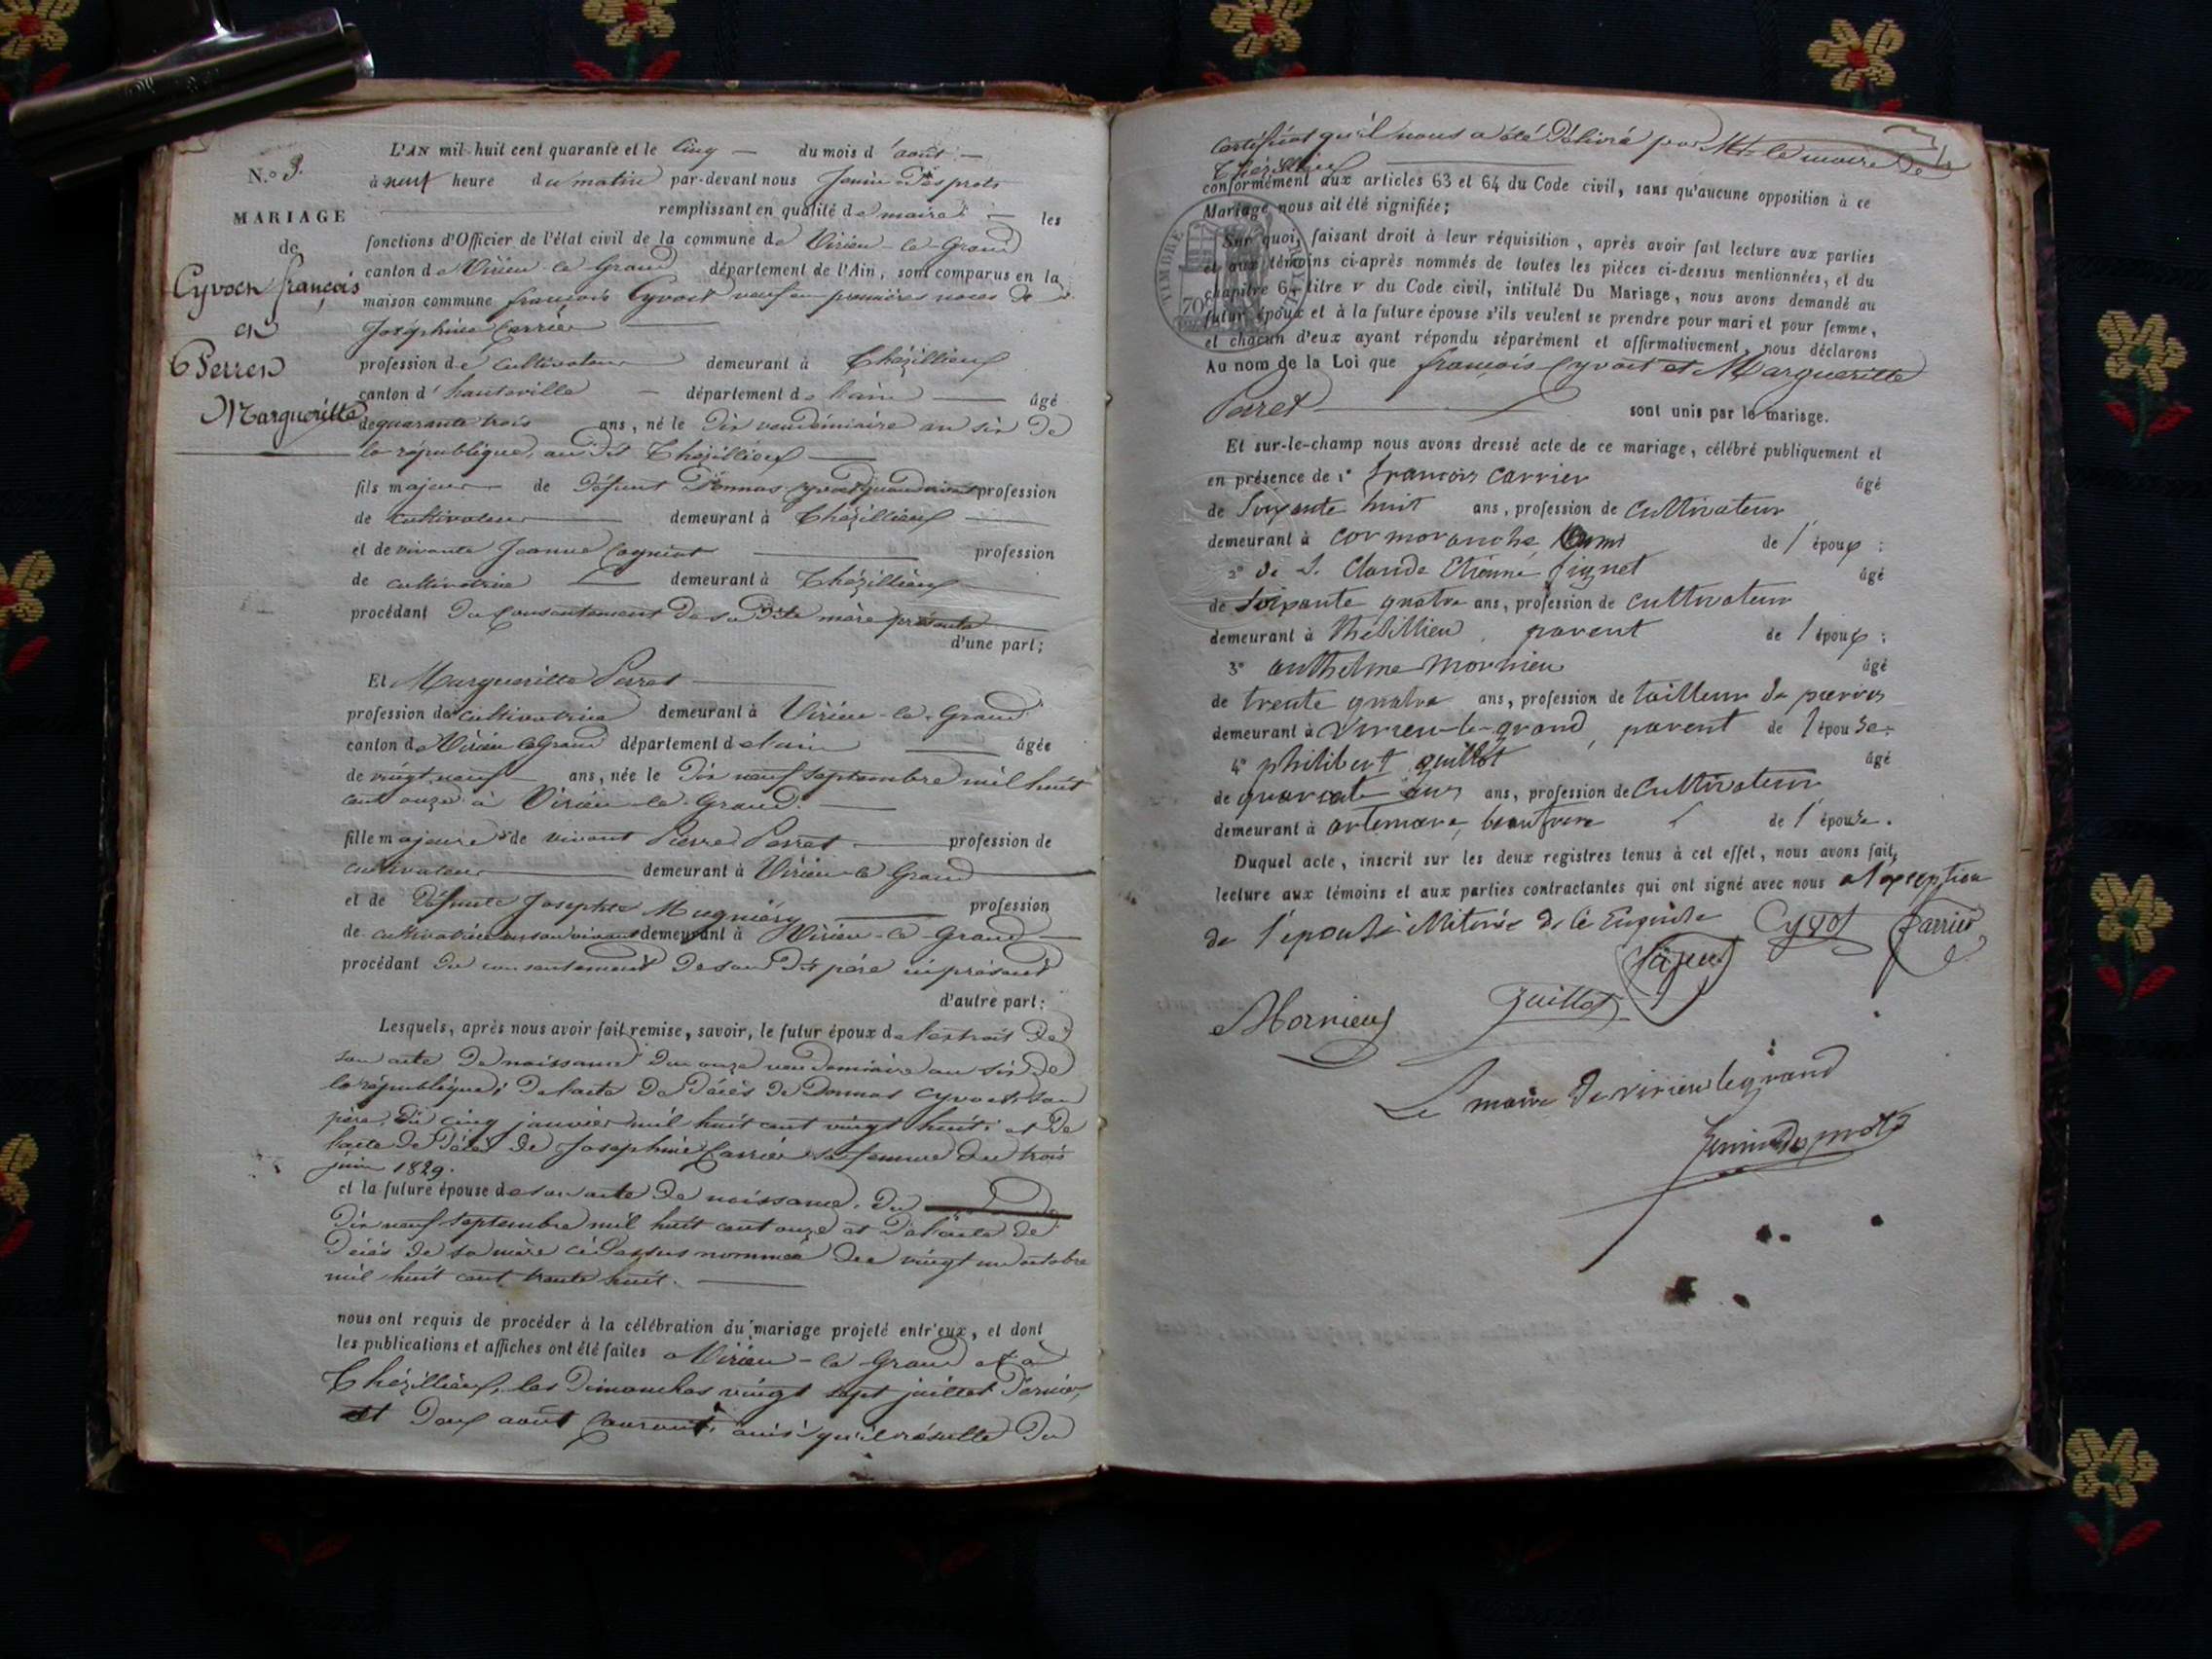 N.o 9.
MARIAGE
de
Cyvoct françois
et
Perret
Margueritte
L'AN mil huit cent quarante et le cinq du mois d'août
à neuf heure du matin par-devant nous Jenin Desprots
remplissant en qualité de maire les
fonctions d'Officier de l'état civil de la commune de Virieu-le-Grand
canton de Virieu-le-Grand département de l'Ain, sont comparus en la
maison commune françois Cyvoct veuf en premières noces de
Joséphine Carrier
profession de cultivateur demeurant à Thézillieux
canton d'hauteville département de l'ain âgé
de quarante trois ans, né le dix vendémiaire an six de
la république, au dit Thézillieux
fils majeur de défunt Domnas Cyvoct quand vivant profession
de cultivateur demeurant à Thézillieux
et de vivante Jeanne profession
de cultivatrice demeurant à Thézillieux
procédant du consentement de sa dite mère présente
d'une part;
Et Margueritte Perret
profession de cultivatrice demeurant à Virieu-le-Grand
canton de Virieu le Grand département de l'ain âgée
de vingt neuf ans, née le dix neuf septembre mil huit
cent onze à Virieu-le-Grand
fille majeure de vivant Pierre Perret profession de
cultivateur demeurant à Virieu-le-Grand
et de défunte Josephte Mugniéry profession
de cultivatrice en son vivant demeurant à Virieu-le-Grand
procédant du consentement de son dit père ci présent
d'autre part:
Lesquels, après nous avoir fait remise, savoir, le futur époux de l'extrait de
son acte de naissance du onze vendémiaire an six de
la république; de l'acte de décès de Domnas Cyvoct son
père, du cinq janvier mil huit cent vingt huit; et de
l'acte de décès de Joséphine Carrier sa femme du trois
juin 1829.
et la future épouse de son acte de naissance, du
dix neuf septembre mil huit cent onze et de l'acte de
décès de sa mère ci dessus nommée du vingt un octobre
mil huit cent trente huit.
nous ont requis de procéder à la célébration du mariage projeté entr'eux, et dont
les publications et affiches ont été faites à Virieu-le-Grand et à
Thézillieux, les dimanches vingt sept juillet dernier,
et deux août courant, ainsi qu'il résulte du
certificat qu'il nous a été délivré par Mr le maire de
Thézillieux
conformément aux articles 63 et 64 du Code civil, sans qu'aucune opposition à ce
Mariage nous ait été signifiée;
Sur quoi, faisant droit à leur réquisition, après avoir fait lecture aux parties
et aux témoins ci-après nommés de toutes les pièces ci-dessus mentionnées, et du
chapitre 6, titre v du Code civil, intitulé Du Mariage, nous avons demandé au
futur époux et à la future épouse s'ils veulent se prendre pour mari et pour femme,
et chacun d'eux ayant répondu séparément et affirmativement, nous déclarons
Au nom de la Loi que françois Cyvoct et Margueritte
Perret sont unis par le mariage.
Et sur-le-champ nous avons dressé acte de ce mariage, célébré publiquement et
en présence de 1° francois carrier âgé
de soixante huit ans, profession de cultivateur
demeurant à cormoranche ami de l'époux;
2° de S. Claude Etienne âgé
de soixante quatre ans, profession de cultivateur
demeurant à thesillieu, parent de l'époux;
3° anthelme mornieu âgé
de trente quatre ans, profession de tailleur de pierres
demeurant à Virieu-le-grand, parent de l'épouse;
4° philibert guillot âgé
de quarente ans, profession de cultivateur
demeurant à artemare, beau frere de l'épouse.
Duquel acte, inscrit sur les deux registres tenus à cet effet, nous avons fait,
lecture aux témoins et aux parties contractantes qui ont signé avec nous a l'exception
de l'épouse illiterée de ce enquise Cyvot Carrier
Mornieux Guillot
Le maire de virieu le grand
Jenin desprots
TIMBRE ROYAL
70